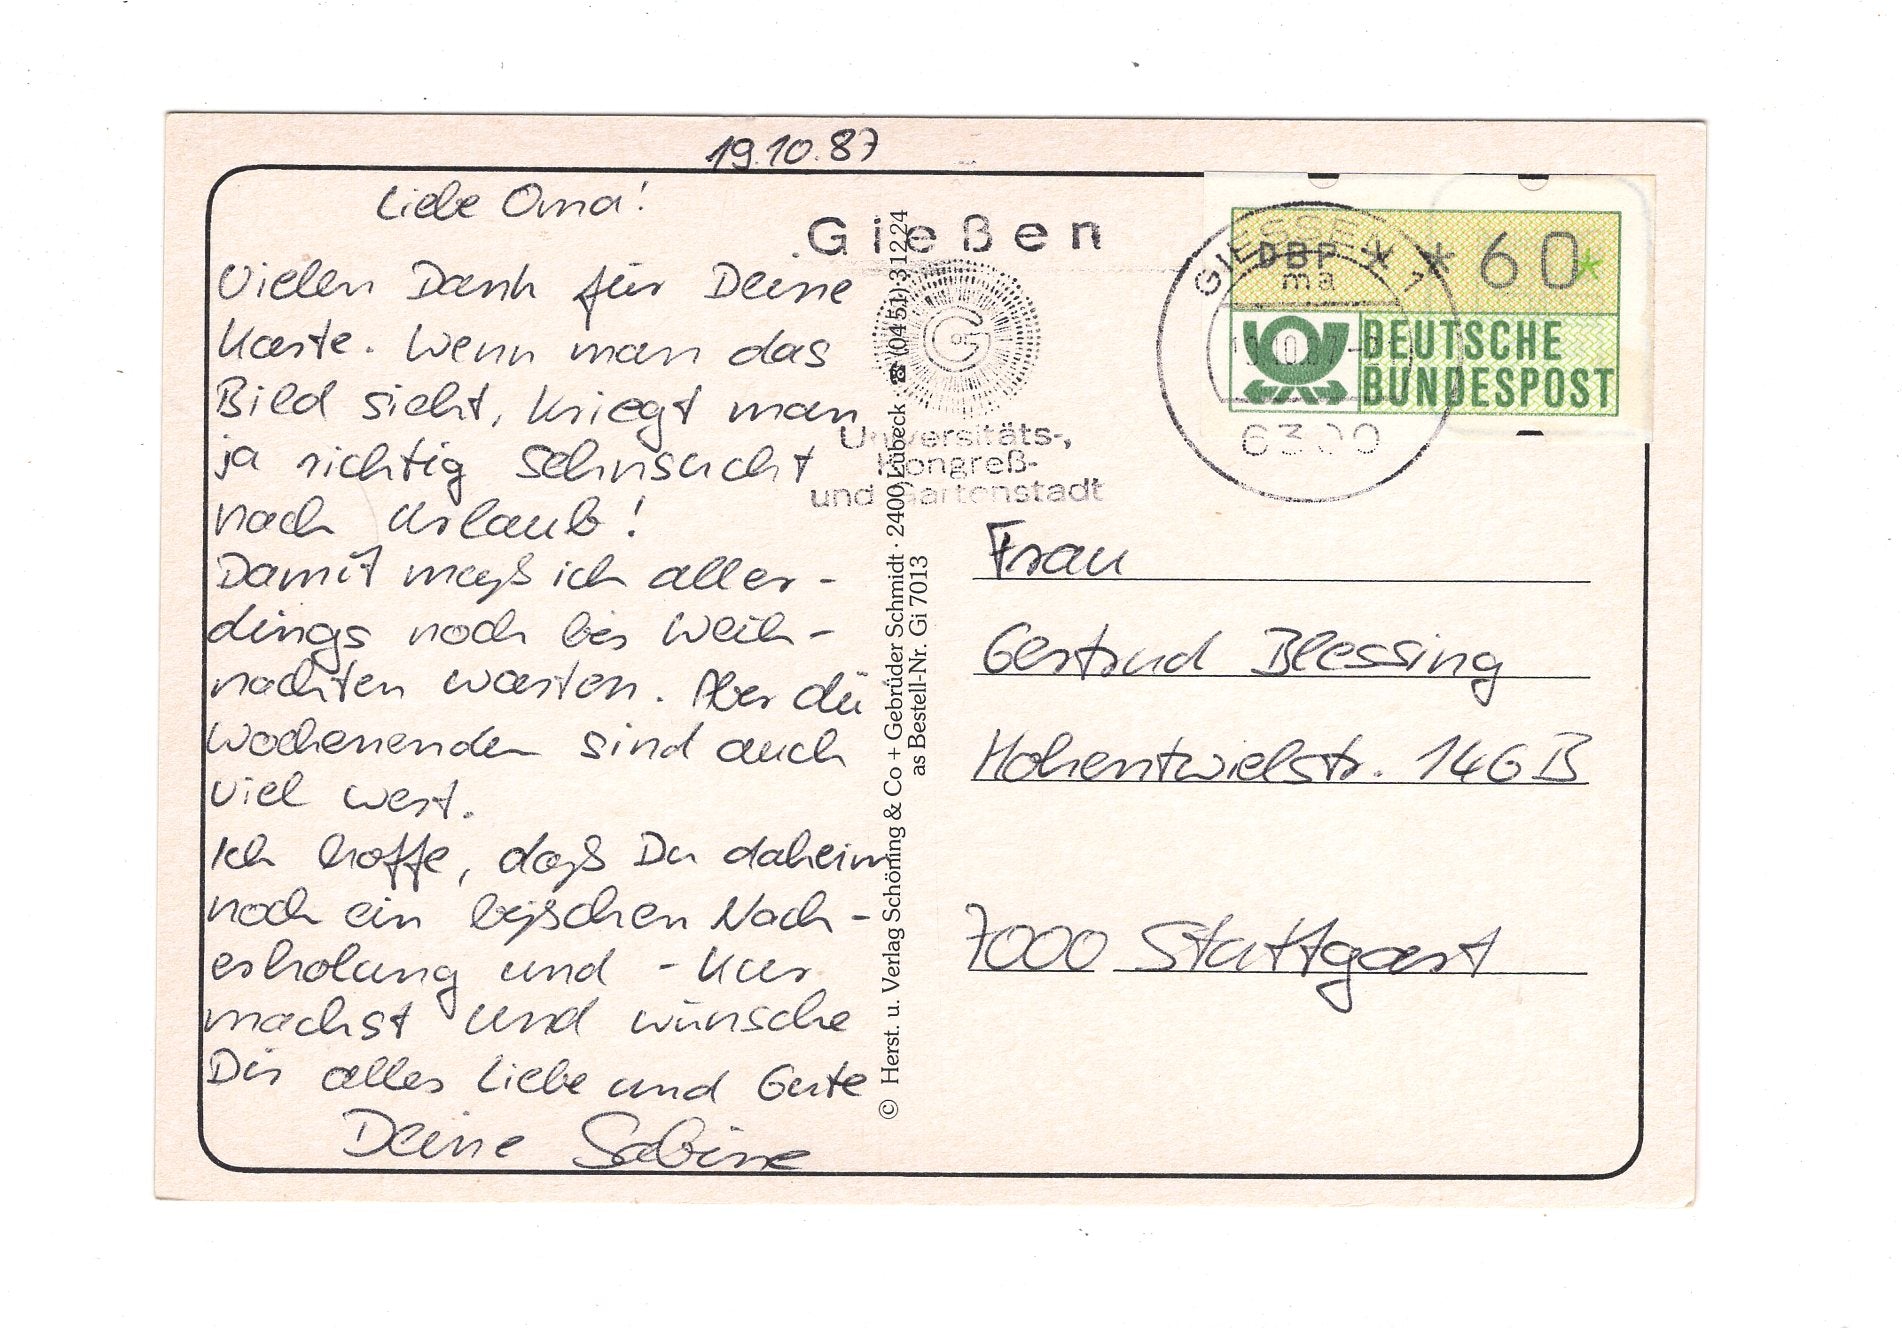 19.10.87
Liebe Oma!
Vielen Dank für Deine
Karte. Wenn man das
Bild sieht, kriegt man
ja richtig Sehnsucht
nach Urlaub!
Damit muß ich aller-
dings noch bis Weih-
nachten warten. Aber die
Wochenenden sind auch
viel wert.
Ich hoffe, daß Du daheim
noch ein bißchen Nach-
erholung und -Kur
machst und wünsche
Dir alles Liebe und Gute
Deine Sabine
Gießen
G
Universitäts-,
Kongreß-
und Gartenstadt
© Herst. u. Verlag Schöning & Co + Gebrüder Schmidt · 2400 Lübeck · ☎ (0451) 31224
as Bestell-Nr. Gi 7013
GIESSEN 1
ma
6300
DBP * * 60*
DEUTSCHE
BUNDESPOST
Frau
Gertrud Blessing
Hohentwielstr. 146B
7000 Stuttgart